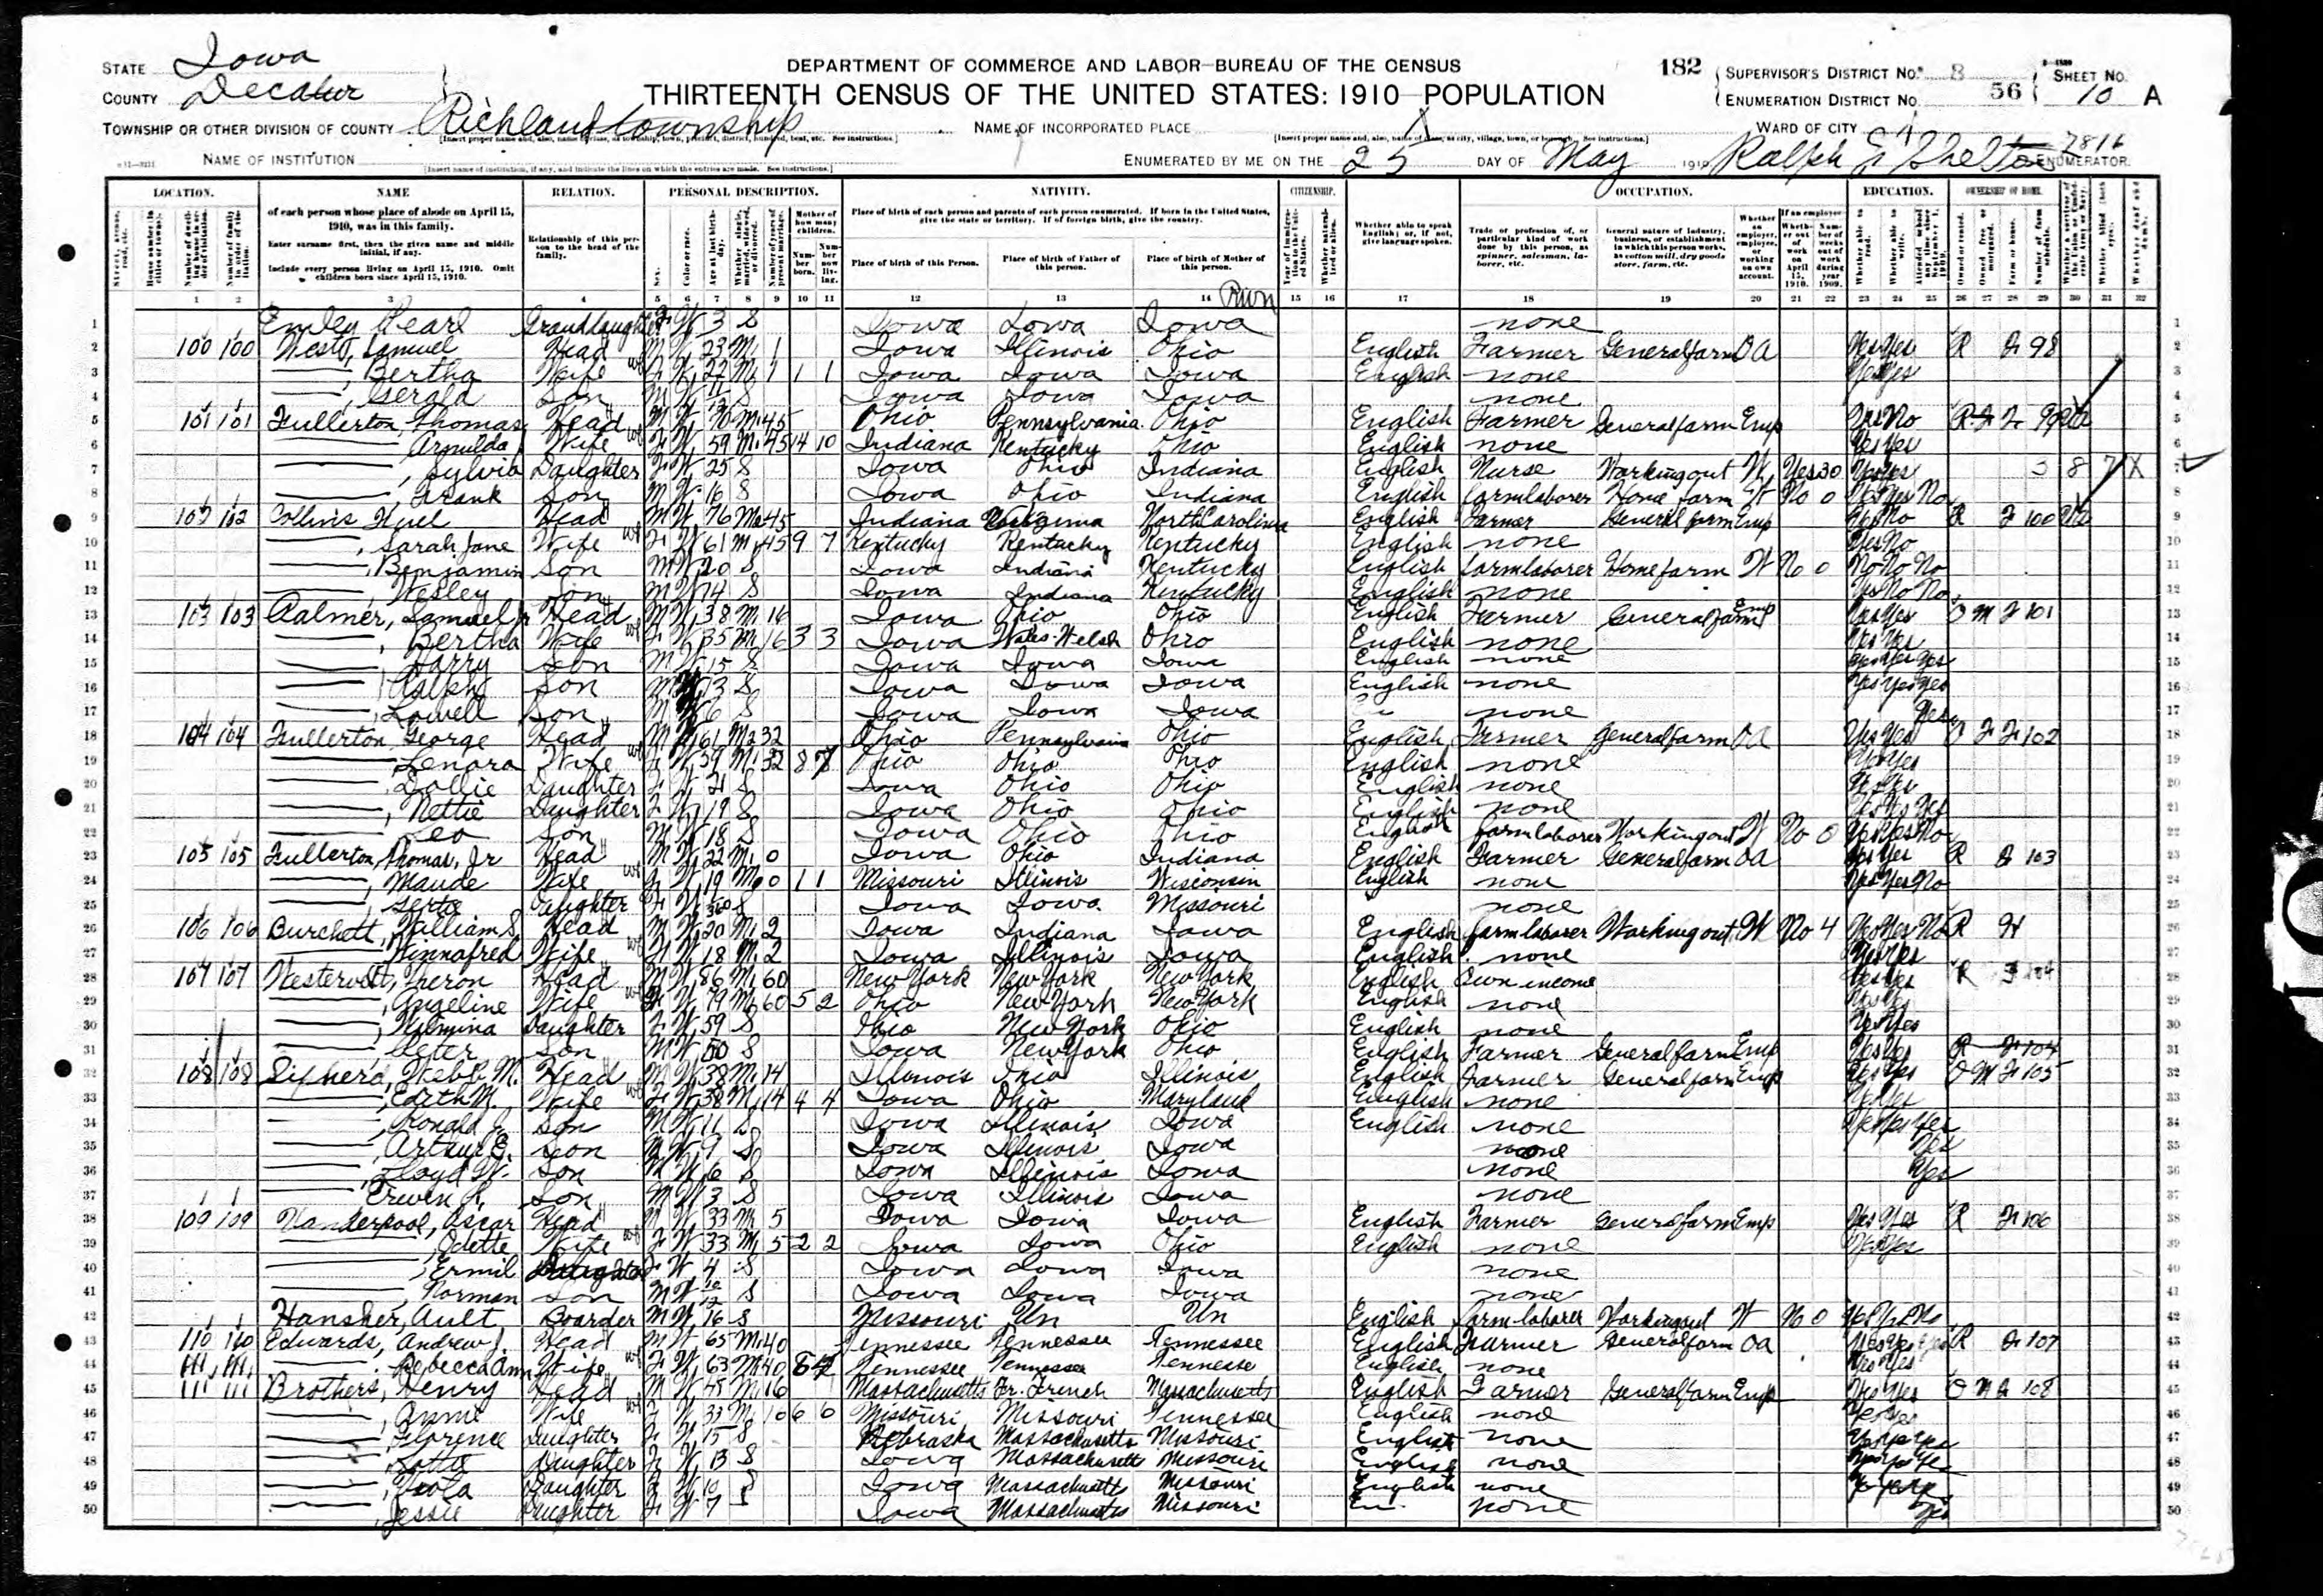 STATE Iowa
COUNTY Decatur
DEPARTMENT OF COMMERCE AND LABOR—BUREAU OF THE CENSUS
THIRTEENTH CENSUS OF THE UNITED STATES: 1910—POPULATION
182
SUPERVISOR'S DISTRICT NO. 8
ENUMERATION DISTRICT NO. 56
SHEET NO. 10 A
TOWNSHIP OR OTHER DIVISION OF COUNTY Richland township
NAME OF INCORPORATED PLACE X
WARD OF CITY
NAME OF INSTITUTION
ENUMERATED BY ME ON THE 25 DAY OF May 1910 Ralph E Shelton ENUMERATOR.
LOCATION. NAME RELATION. PERSONAL DESCRIPTION. NATIVITY. CITIZENSHIP. OCCUPATION. EDUCATION. OWNERSHIP OF HOME.
of each person whose place of abode on April 15, 1910, was in this family.
Enter surname first, then the given name and middle initial, if any.
Include every person living on April 15, 1910. Omit children born since April 15, 1910.
Relationship of this person to the head of the family.
Place of birth of each person and parents of each person enumerated. If born in the United States, give the state or territory. If of foreign birth, give the country.
Place of birth of this Person. Place of birth of Father of this person. Place of birth of Mother of this person.
Whether able to speak English; or, if not, give language spoken.
1 2 3 4 5 6 7 8 9 10 11 12 13 14 15 16 17 18 19 20 21 22 23 24 25 26 27 28 29 30 31 32
1 Emley Pearl Granddaughter F W 3 S Iowa Iowa Iowa none
2 100 100 West, Samuel Head M W 23 M1 1 Iowa Illinois Ohio English Farmer General farm OA Yes Yes R F 98
3 —, Bertha Wife F W 22 M1 1 1 1 Iowa Iowa Iowa English none Yes Yes
4 —, Gerald Son M W S Iowa Iowa Iowa none
5 101 101 Fullerton, Thomas Head M W 70 M1 45 Ohio Pennsylvania Ohio English Farmer General farm Emp Yes No R F 99
6 — Wife F W 59 M1 45 14 10 Indiana Kentucky Ohio English none Yes Yes
7 —, Sylvia Daughter F W 25 S Iowa Ohio Indiana English Nurse Working out W Yes 30 Yes Yes
8 —, Frank Son M W 16 S Iowa Ohio Indiana English farm laborer Home farm W No 0 Yes Yes No
9 102 102 Collins Head M W 76 M2 45 Indiana Virginia North Carolina English Farmer General farm Emp Yes No R F 100
10 —, Sarah Jane Wife F W 61 M1 45 9 7 Kentucky Kentucky Kentucky English none Yes No
11 —, Benjamin Son M W 20 S Iowa Indiana Kentucky English farm laborer Home farm W No 0 No No No
12 —, Wesley Son M W 14 S Iowa Indiana Kentucky English none Yes No No
13 103 103 Palmer, Samuel Jr Head M W 38 M1 16 Iowa Ohio Ohio English Farmer General farm Emp Yes Yes O M F 101
14 —, Bertha Wife F W 35 M1 16 3 3 Iowa Wales-Welsh Ohio English none Yes Yes
15 —, Harry Son M W 15 S Iowa Iowa Iowa English none Yes Yes Yes
16 —, Ralph Son M W 13 S Iowa Iowa Iowa English none Yes Yes Yes
17 —, Lowell Son M W 6 S Iowa Iowa Iowa none Yes
18 104 104 Fullerton, George Head M W 61 M2 32 Ohio Pennsylvania Ohio English Farmer General farm OA Yes Yes O F F 102
19 — Lenora Wife F W 59 M1 32 8 7 Ohio Ohio Ohio English none Yes Yes
20 —, Dollie Daughter F W 21 S Iowa Ohio Ohio English none Yes Yes
21 —, Nettie Daughter F W 19 S Iowa Ohio Ohio English none Yes Yes Yes
22 —, Leo Son M W 18 S Iowa Ohio Ohio English farm laborer Working out W No 0 Yes Yes No
23 105 105 Fullerton, Thomas, Jr Head M W 22 M1 0 Iowa Ohio Indiana English Farmer General farm OA Yes Yes R F 103
24 —, Maude Wife F W 19 M1 0 1 1 Missouri Illinois Wisconsin English none Yes Yes No
25 — Daughter F W S Iowa Iowa Missouri none
26 106 106 Burchett, William S. Head M W 20 M1 2 Iowa Indiana Iowa English farm laborer Working out W No 4 Yes Yes No R H
27 —, Winnafred Wife F W 18 M1 2 Iowa Illinois Iowa English none Yes Yes
28 107 107 Westervelt, Theron Head M W 86 M1 60 New York New York New York English Own income Yes Yes R F 104
29 —, Angeline Wife F W 79 M1 60 5 2 Ohio New York New York English none Yes Yes
30 — Daughter F W 59 S Ohio New York Ohio English none Yes Yes
31 —, Peter Son M W 50 S Iowa New York Ohio English Farmer General farm Emp Yes Yes R F 104
32 108 108 Sipherd, Webb M. Head M W 38 M1 14 Illinois Ohio Illinois English Farmer General farm Emp Yes Yes O M F 105
33 —, Edith M. Wife F W 38 M1 14 4 4 Iowa Ohio Maryland English none Yes Yes
34 —, Ronald J. Son M W 11 S Iowa Illinois Iowa English none Yes Yes Yes
35 —, Arthur E. Son M W 9 S Iowa Illinois Iowa none Yes
36 —, Floyd W. Son M W 6 S Iowa Illinois Iowa none Yes
37 —, Erwin Son M W 3 S Iowa Illinois Iowa none
38 109 109 Vanderpool, Oscar Head M W 33 M1 5 Iowa Iowa Iowa English Farmer General farm Emp Yes Yes R F 106
39 —, Odette Wife F W 33 M1 5 2 2 Iowa Iowa Ohio English none Yes Yes
40 —, Ermil Daughter F W 4 S Iowa Iowa Iowa none
41 —, Norman Son M W 10/12 S Iowa Iowa Iowa none
42 Hansher, Ault Boarder M W 16 S Missouri Un Un English farm laborer Working out W No 0 Yes Yes No
43 110 110 Edwards, Andrew J. Head M W 65 M1 40 Tennessee Tennessee Tennessee English Farmer General farm OA Yes Yes R F 107
44 —, Rebecca Ann Wife F W 63 M1 40 Tennessee Tennessee Tennessee English none Yes Yes
45 111 111 Brothers, Henry Head M W 45 M1 16 Massachusetts Fr. French Massachusetts English Farmer General farm Emp Yes Yes O M F 108
46 —, Annie Wife F W 33 M1 16 6 6 Missouri Missouri Tennessee English none Yes Yes
47 —, Florence Daughter F W 15 S Nebraska Massachusetts Missouri English none Yes Yes Yes
48 —, Lottie Daughter F W 13 S Iowa Massachusetts Missouri English none Yes Yes Yes
49 —, Viola Daughter F W 10 S Iowa Massachusetts Missouri English none Yes Yes Yes
50 —, Jessie Daughter F W 7 S Iowa Massachusetts Missouri En. none Yes